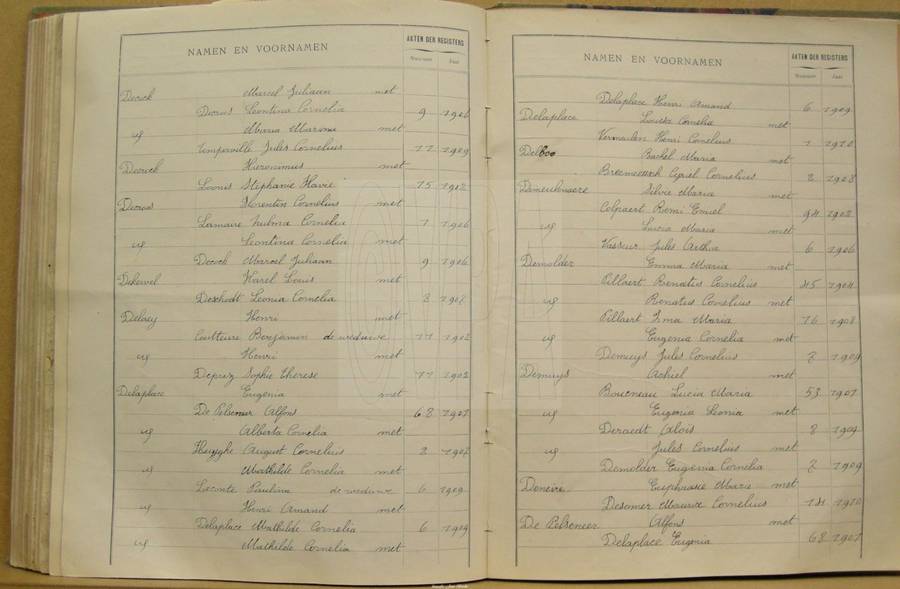 NAMEN EN VOORNAMEN
AKTEN DER REGISTERS
Nummer Jaar
Marcel Juliaan met
Leontina Cornelia 9 1906
Maria met
Jules Cornelius 1909
Hieronimus met
Stephanie 15 1902
Florentin Cornelius met
Lamaire Zulma Cornelia 1 1906
id Leontina Cornelia met
Marcel Juliaan 9 1906
Karel Louis met
Leonia Cornelia 8
Henri met
Benjamin de weduwe 1902
id Henri met
Deprez Sophie Therese 1902
Delaplace Eugenia met
De Pelseneer Alfons 68 1901
id Alberta Cornelia met
Huyghe August Cornelius 2
id Mathilde Cornelia met
Leconte Paulina de weduwe 6 1909
id Henri Amand met
Delaplace Mathilde Cornelia 6 1909
id Mathilde Cornelia met
NAMEN EN VOORNAMEN
AKTEN DER REGISTERS
Nummer Jaar
Delaplace Henri Amand 6 1909
Delaplace Louise Cornelia met
Vermeulen Henri Cornelius 1 1910
Rachel Maria met
Cyriel Cornelius 2 1908
Demeulenaere Silvie Maria met
Colpaert Remi Emiel 94 1902
id Lucia Maria met
Vasseur Jules Arthur 6 1906
Demolder Emma Maria met
Pillaert Renatus Cornelius 45 1904
id Renatus Cornelius met
Pillaert Irma Maria 16 1908
id Eugenia Cornelia met
Demuys Jules Cornelius 2 1909
Demuys Achiel met
Boucneau Lucia Maria 53 1901
id Eugenia Leonia met
Deraedt Alois 8 1904
id Jules Cornelius met
Demolder Eugenia Cornelia 2 1909
Euphrasie Marie met
Desomer Maurice Cornelius 1910
De Pelseneer Alfons met
Delaplace Eugenia 68 1901